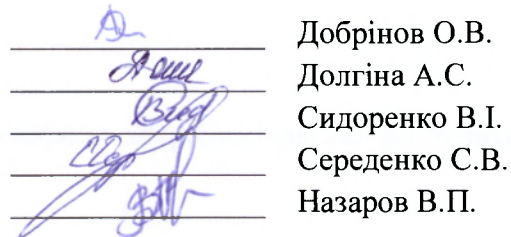 Добрінов О.В.
Долгіна А.С.
Сидоренко В.І.
Середенко С.В.
Назаров В.П.